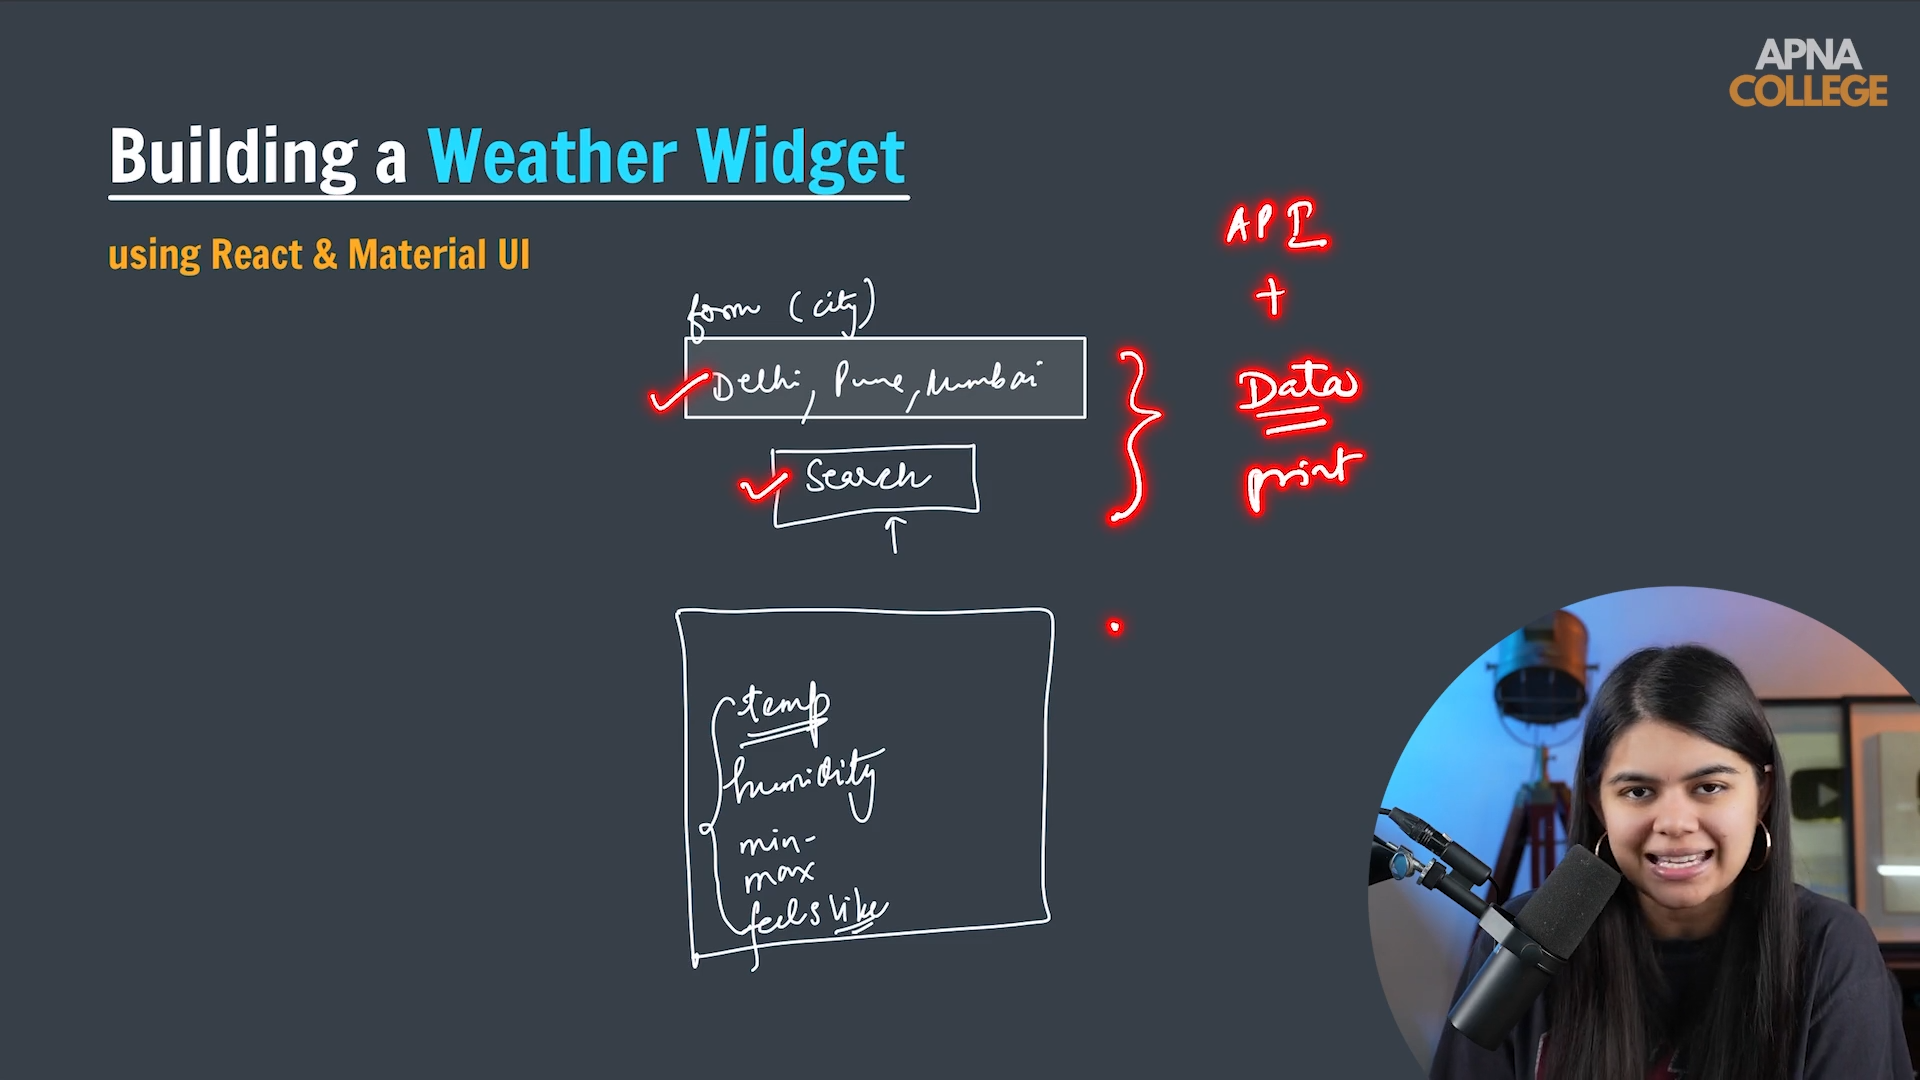 APNA
COLLEGE
Building a Weather Widget
using React & Material UI
API
+
form (city)
Delhi, Pune, Mumbai
Data
Search
print
temp
humidity
min-
max
feels like